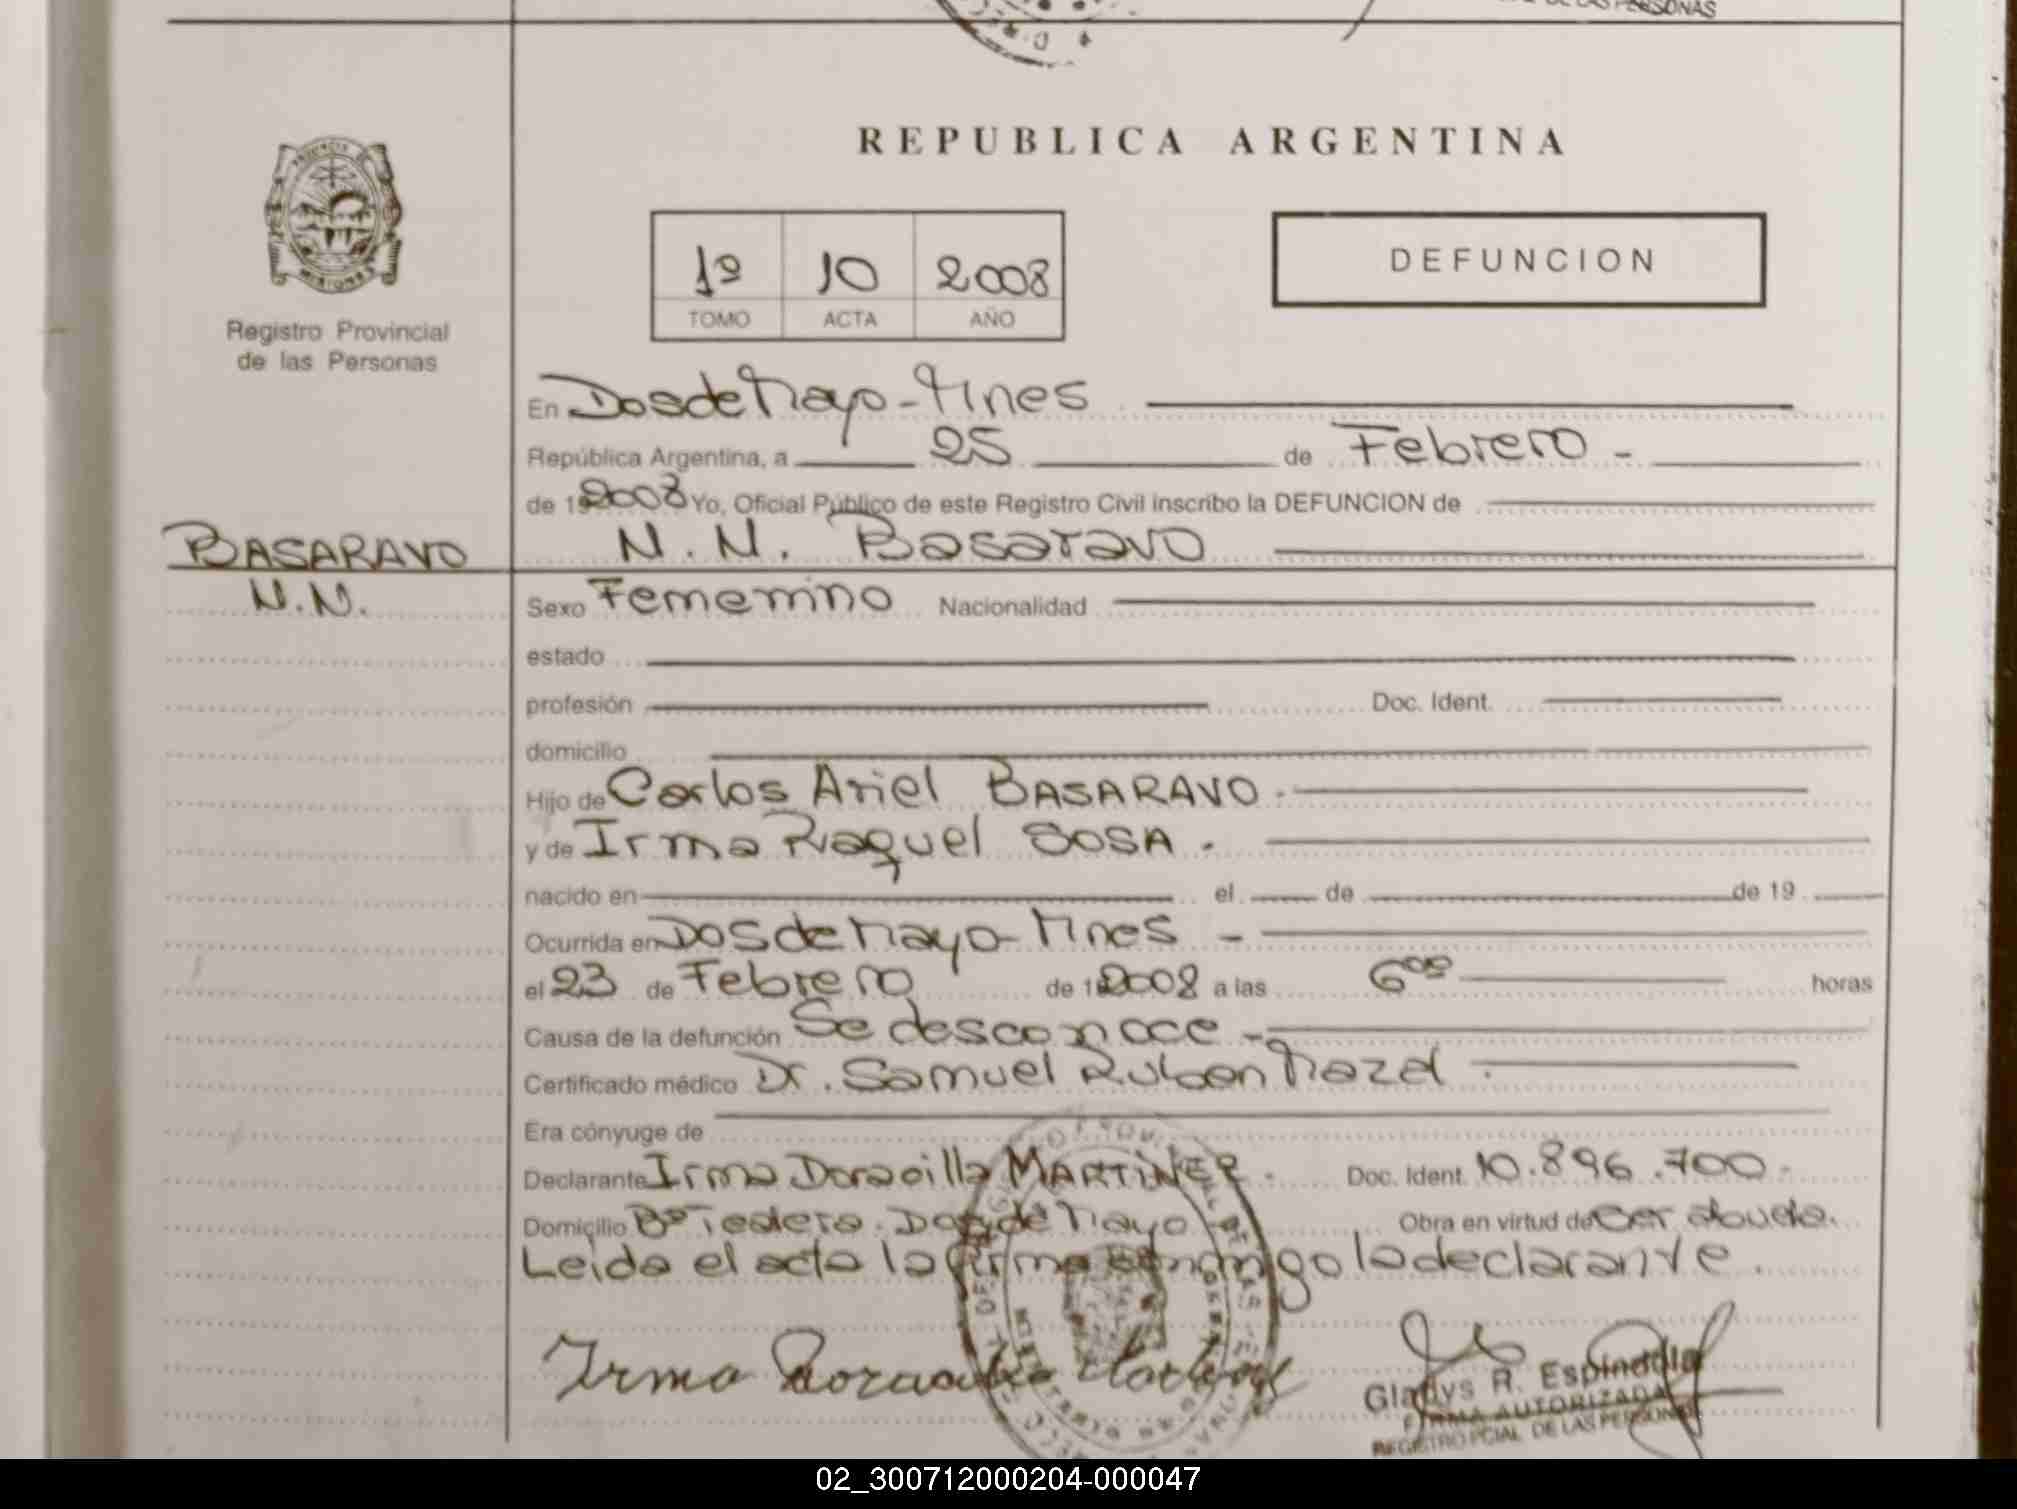 DE LAS PERSONAS
REPUBLICA ARGENTINA
1º 10 2008
TOMO ACTA AÑO
DEFUNCION
Registro Provincial
de las Personas
En Dos de Mayo - Mnes
República Argentina, a 25 de Febrero -
de 19 2008 Yo, Oficial Público de este Registro Civil inscribo la DEFUNCION de
BASARAVO
N. N. Basaravo
N.N.
Sexo Femenino Nacionalidad
estado
profesión Doc. Ident.
domicilio
Hijo de Carlos Ariel BASARAVO.
y de Irma Raquel SOSA.
nacido en el de de 19
Ocurrida en Dos de Mayo - Mnes -
el 23 de Febrero de 19 2008 a las 6 horas
Causa de la defunción Se desconoce -
Certificado médico Dr. Samuel Ruben
Era cónyuge de
Declarante Irma MARTINEZ. Doc. Ident. 10.896.700.
Domicilio Bº Dos de Mayo Obra en virtud de ser abuela.
Leida el acta la firma conmigo la declarante.
Irma
Gladys R. Espindola
FIRMA AUTORIZADA
REGISTRO PCIAL DE LAS PERSONAS
02_300712000204-000047